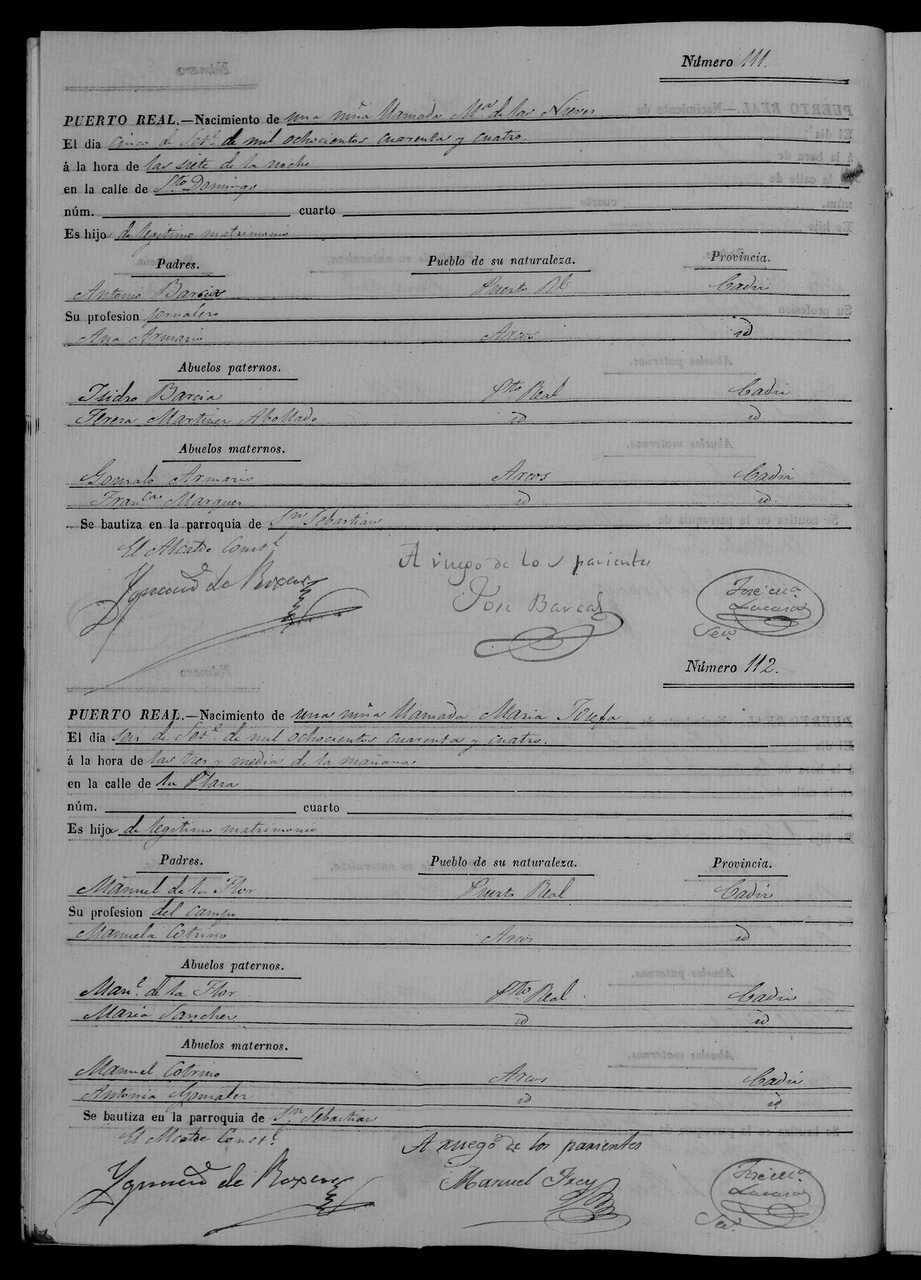 Número 111.
PUERTO REAL.—Nacimiento de una niña llamada Mª de las Nieves
El dia cinco de Setᵉ de mil ochocientos cuarenta y cuatro
á la hora de las siete de la noche
en la calle de Sto Domingo
núm. cuarto
Es hijo de legitimo matrimonio
Padres. Pueblo de su naturaleza. Provincia.
Antonio Barcia Puerto Rl Cadiz
Su profesion jornalero
Ana Armario Arcos id
Abuelos paternos.
Isidro Barcia Pto Real Cadiz
Teresa Martinez Abollado id id
Abuelos maternos.
Gonzalo Armario Arcos Cadiz
Franca Marquez id id.
Se bautiza en la parroquia de Sn Sebastian
El Alcalde Constl
A ruego de los parientes
Ygnacio de
Jose Barcas
Jose
Seco
Número 112.
PUERTO REAL.—Nacimiento de una niña llamada Maria Josefa
El dia seis de Setᵉ de mil ochocientos cuarenta y cuatro.
á la hora de las tres y media de la mañana
en la calle de la Plaza
núm. cuarto
Es hija de legitimo matrimonio
Padres. Pueblo de su naturaleza. Provincia.
Manuel de la Flor Puerto Real Cadiz
Su profesion del campo
Manuela Cotrino Arcos id
Abuelos paternos.
Manl de la Flor Pto Real Cadiz
Maria Sanchez id id
Abuelos maternos.
Manuel Cotrino Arcos Cadiz
Antonia Gonzalez id id
Se bautiza en la parroquia de Sn Sebastian
El Alcalde Constl
A ruego de los parientes
Ygnacio de
Manuel
Jose